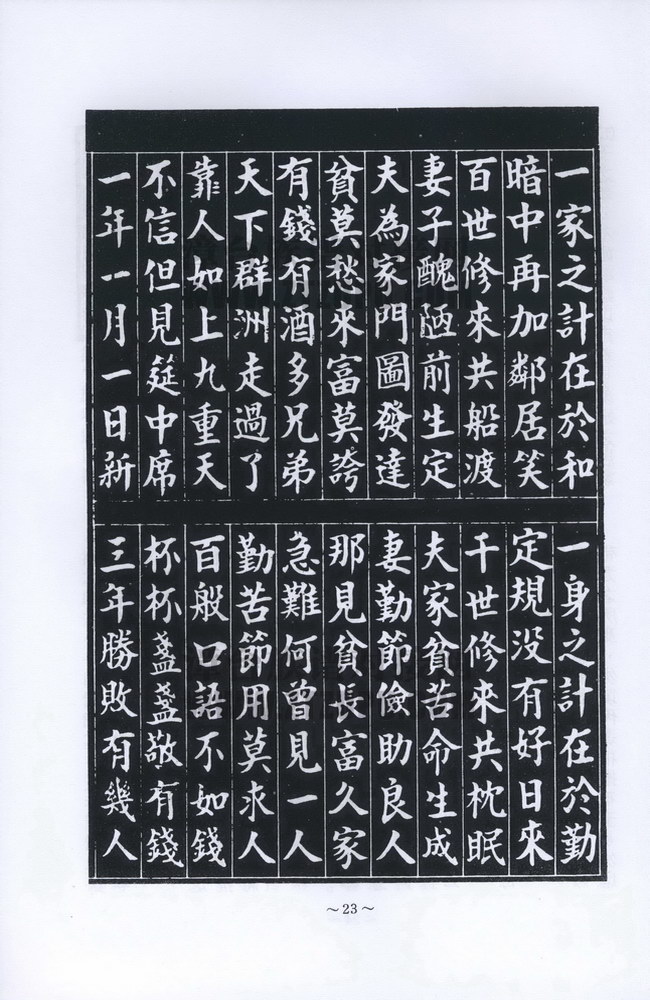 一家之計在於和
一身之計在於勤
暗中再加鄰居笑
定規没有好日來
百世修來共船渡
千世修來共枕眠
妻子醜陋前生定
夫家貧苦命生成
夫為家門圖發達
妻勤節儉助良人
貧莫愁來富莫誇
那見貧長富久家
有錢有酒多兄弟
急難何曾見一人
天下群洲走過了
勤苦節用莫求人
靠人如上九重天
百般口語不如錢
不信但見筵中席
杯杯盞盞敬有錢
一年一月一日新
三年勝敗有幾人
～23～